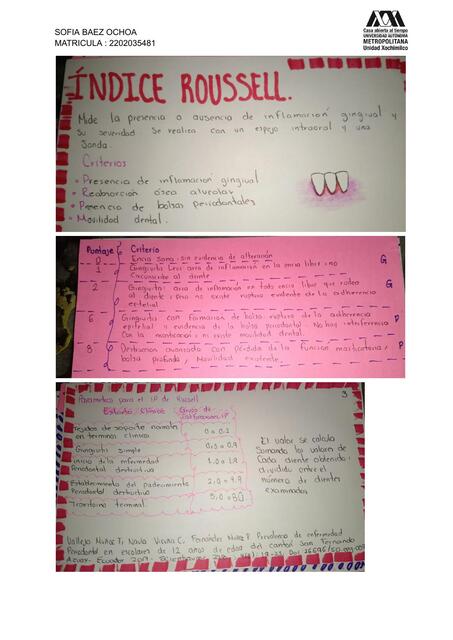 SOFIA BAEZ OCHOA
MATRICULA : 2202035481
Casa abierta al tiempo
UNIVERSIDAD AUTÓNOMA
METROPOLITANA
Unidad Xochimilco
ÍNDICE ROUSSELL.
Mide la presencia o ausencia de inflamación gingival y
su severidad. Se realiza con un espejo intraoral y una
Sonda.
Criterios
• Presencia de inflamación gingival
• Reabsorción ósea alveolar
• Presencia de bolsas periodontales
• Movilidad dental.
Puntaje Criterio
0 Encía Sana: sin evidencia de alteración G
1 Gingivitis Leve: área de inflamación en la encía libre no
circunscribe al diente
2 Gingivitis: área de inflamación en toda encía libre que rodea G
al diente; pero no existe ruptura evidente de la adherencia
epitelial
6 Gingivitis con formación de bolsa ruptura de la adherencia P
epitelial y evidencia de la bolsa periodontal. No hay interferencia
con la masticación ni existe movilidad dental.
8 Destrucción avanzada con Pérdida de la función masticatoria, P
bolsa profunda, Movilidad existente.
Parametros para el IP de Russell 3
Estadio Clínico Grupo de
IP
Tejidos de soporte normales 0 a 0.2
en terminos clinicos
Gingivitis simple 0.3 a 0.9
Inicio de la enfermedad 1.0 a 1.9
Periodontal destructiva
Establecimiento del padecimiento 2.0 a 4.9
Periodontal destructivo
Trastorno terminal. 5.0 a 8.0
El valor se calcula
Sumando los valores de
Cada diente obtenido
dividido entre el
número de dientes
examinados
Vallejo Nuñez T, Navia Viviana C, Fernández Nuñez P. Prevalencia de enfermedad
Periodontal en escolares de 12 años de edad del cantón San Fernando
Azuay- Ecuador 2017.